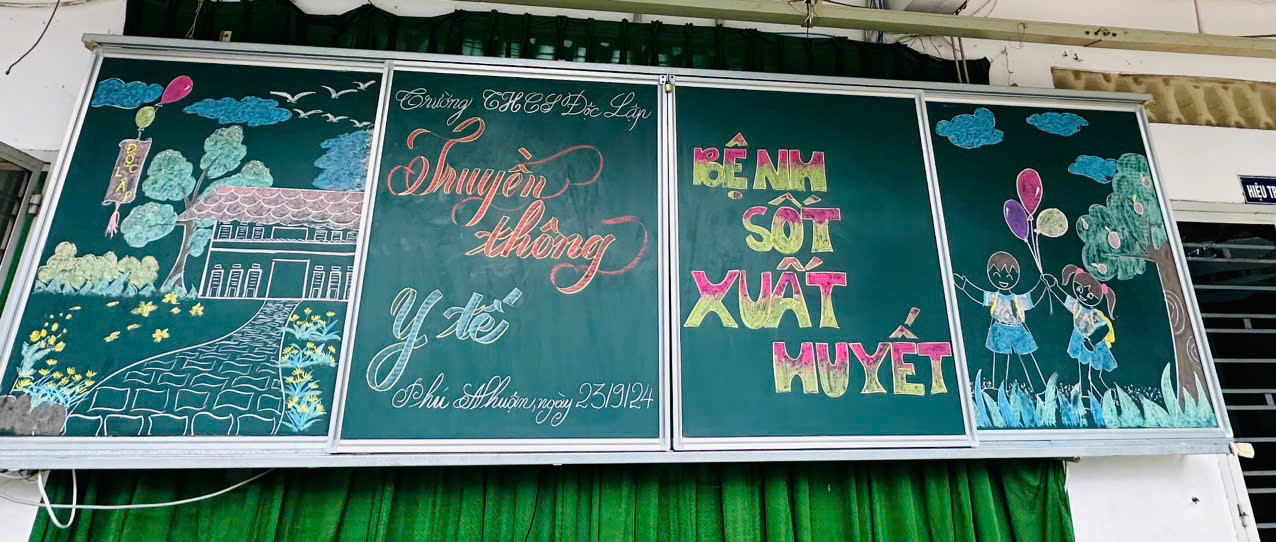 ĐỘC
LẬP
Trường THCS Độc Lập
Truyền
thông
Y tế
Phú Nhuận, ngày 23/9/24
BỆNH
SỐT
XUẤT
HUYẾT
HIỆU TR